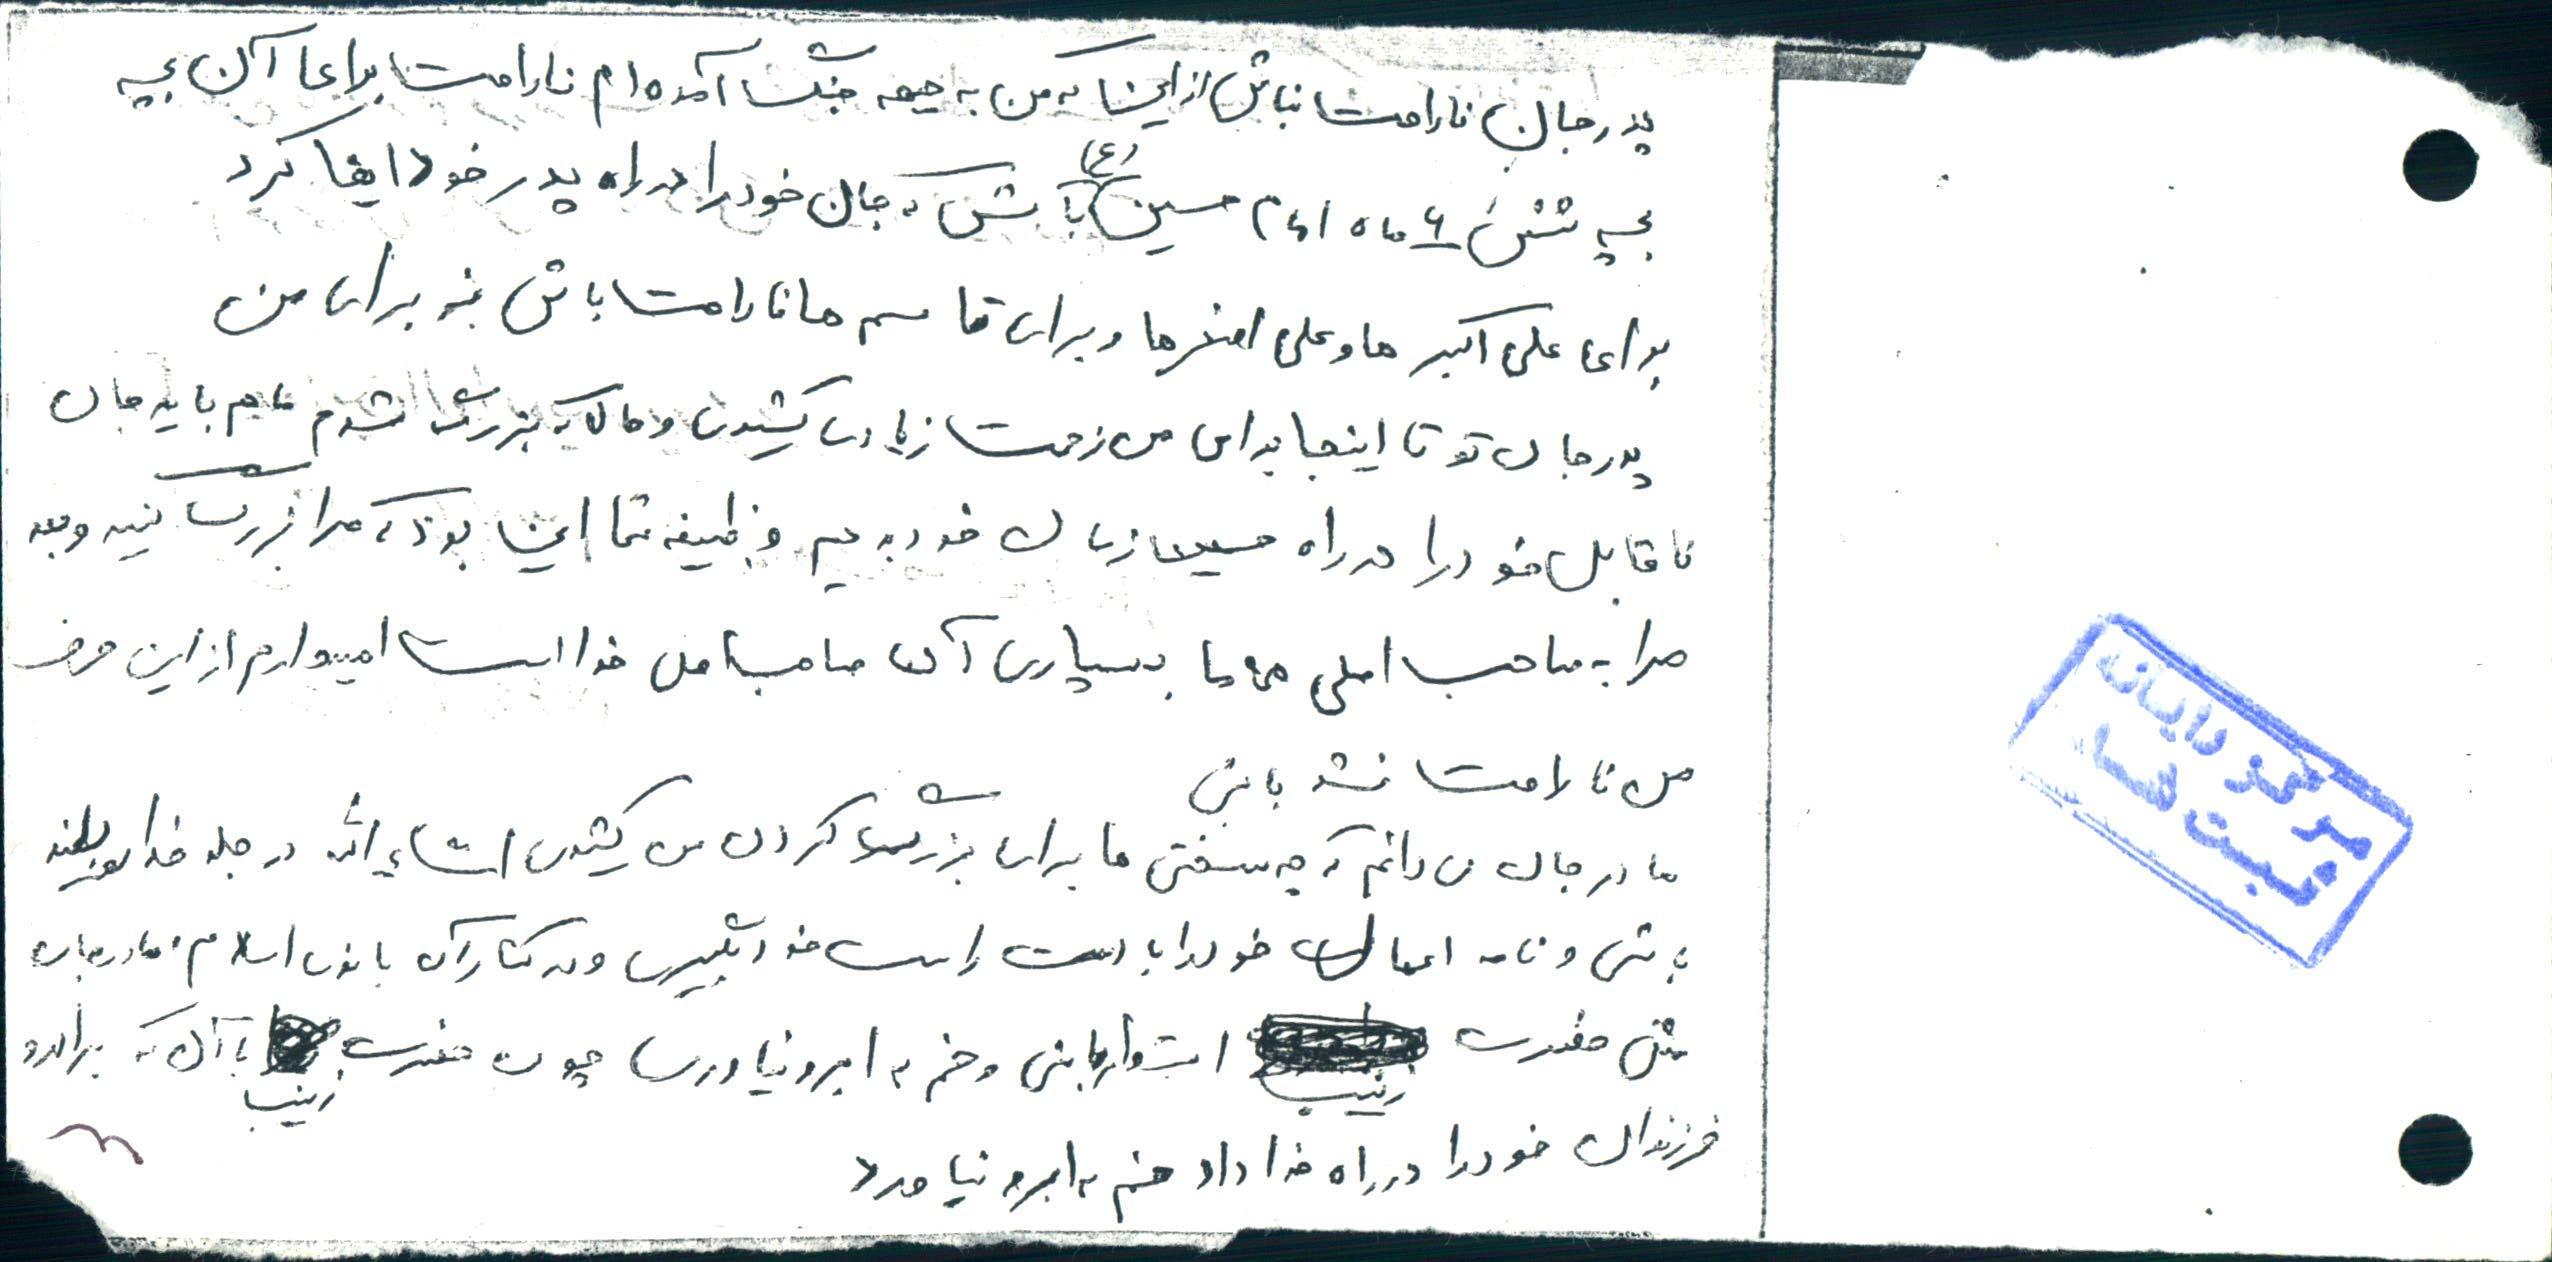 پدر جان ناراحت نباش از این که من به جبهه جنگ آمده ام ناراحت برای آن بچه
بچه شش ۶ ماه امام حسین (ع) باش که جان خود را در راه پدر خود ایفا کرد
برای علی اکبر ها و علی اصغرها و برای قاسم ها ناراحت باش نه برای من
پدر جان تو تا اینجا برای من زحمت زیادی کشیدی و حال که بزرگ شدم ما هم باید جان
ناقابل خود را در راه حسین زمان خود بدهیم وظیفه شما این بود که مرا بزرگ کنید و بعد
مرا به صاحب اصلی ما بسپاری آن صاحب اصلی خدا است امیدوارم از این حرف
من ناراحت نشد باشی
مادر جان می دانم که چه سختی ها برای بزرگ کردن من کشیدی انشاء الله در جلو خدا رو
باشی و نامه اعمال خود را با دست راست خود بگیری و در کنار آن بانوی اسلام مادر جان
مثل حضرت زینب استوار باشی و خم به ابرو نیاوری چون حضرت زینب با آن که برادر و
فرزندان خود را در راه خدا داد خم به ابرو نیاورد
مرکز رایانه
ثبت شد